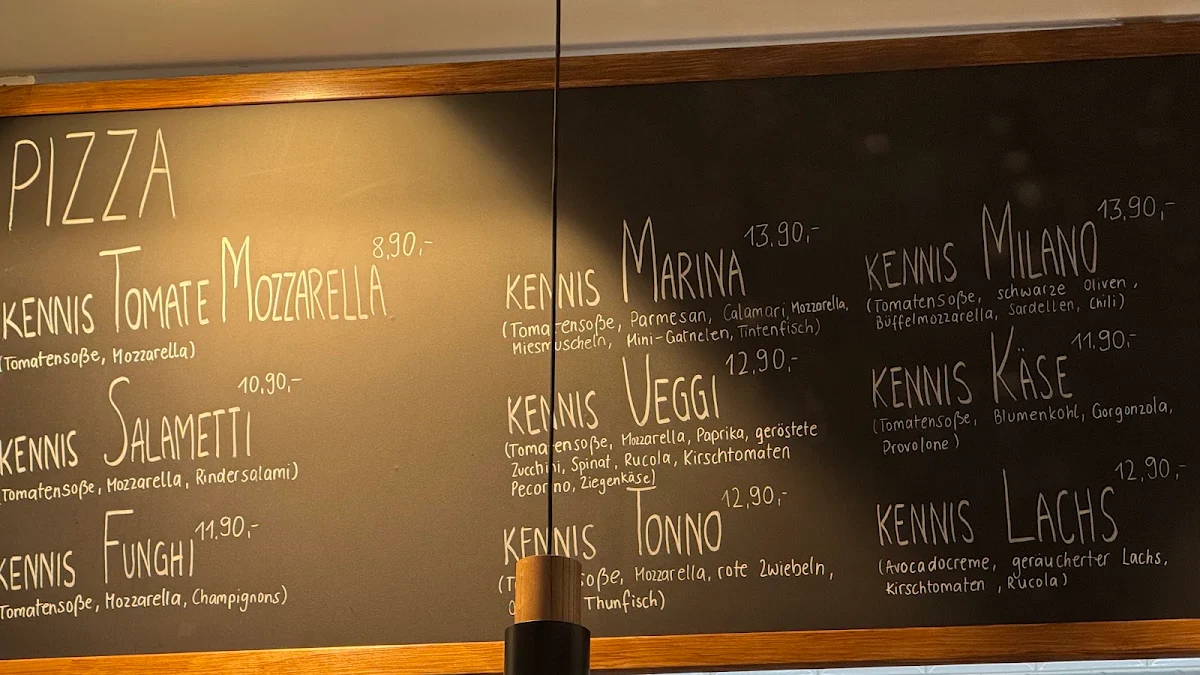 PIZZA
KENNIS TOMATE MOZZARELLA 8,90,-
(Tomatensoße, Mozzarella)
KENNIS SALAMETTI 10,90,-
(Tomatensoße, Mozzarella, Rindersalami)
KENNIS FUNGHI 11,90,-
Tomatensoße, Mozzarella, Champignons)
KENNIS MARINA 13,90,-
(Tomatensoße, Parmesan, Calamari, Mozzarella,
Miesmuscheln, Mini-Garnelen, Tintenfisch)
KENNIS VEGGI 12,90,-
(Tomatensoße, Mozzarella, Paprika, geröstete
Zucchini, Spinat, Rucola, Kirschtomaten
Pecorino, Ziegenkäse)
KENNIS TONNO 12,90,-
soße, Mozzarella, rote Zwiebeln,
Thunfisch)
KENNIS MILANO 13,90,-
(Tomatensoße, schwarze Oliven,
Büffelmozzarella, Sardellen, Chili)
KENNIS KÄSE 11,90,-
(Tomatensoße, Blumenkohl, Gorgonzola,
Provolone)
KENNIS LACHS 12,90,-
(Avocadocreme, geräucherter Lachs,
Kirschtomaten, Rucola)